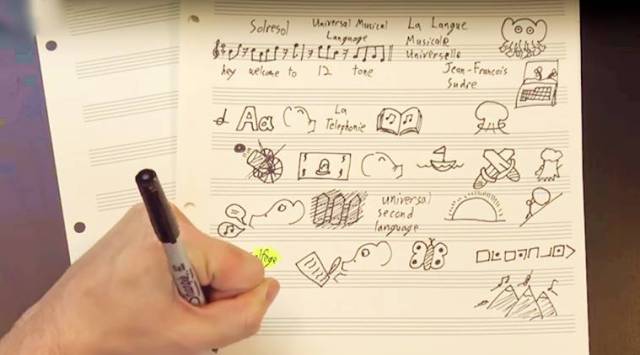 Solresol
Universal Musical Language
La Langue Musicale Universelle
hey welcome to 12 tone
Jean-François Sudre
Aa
La Telephonie
universal second language